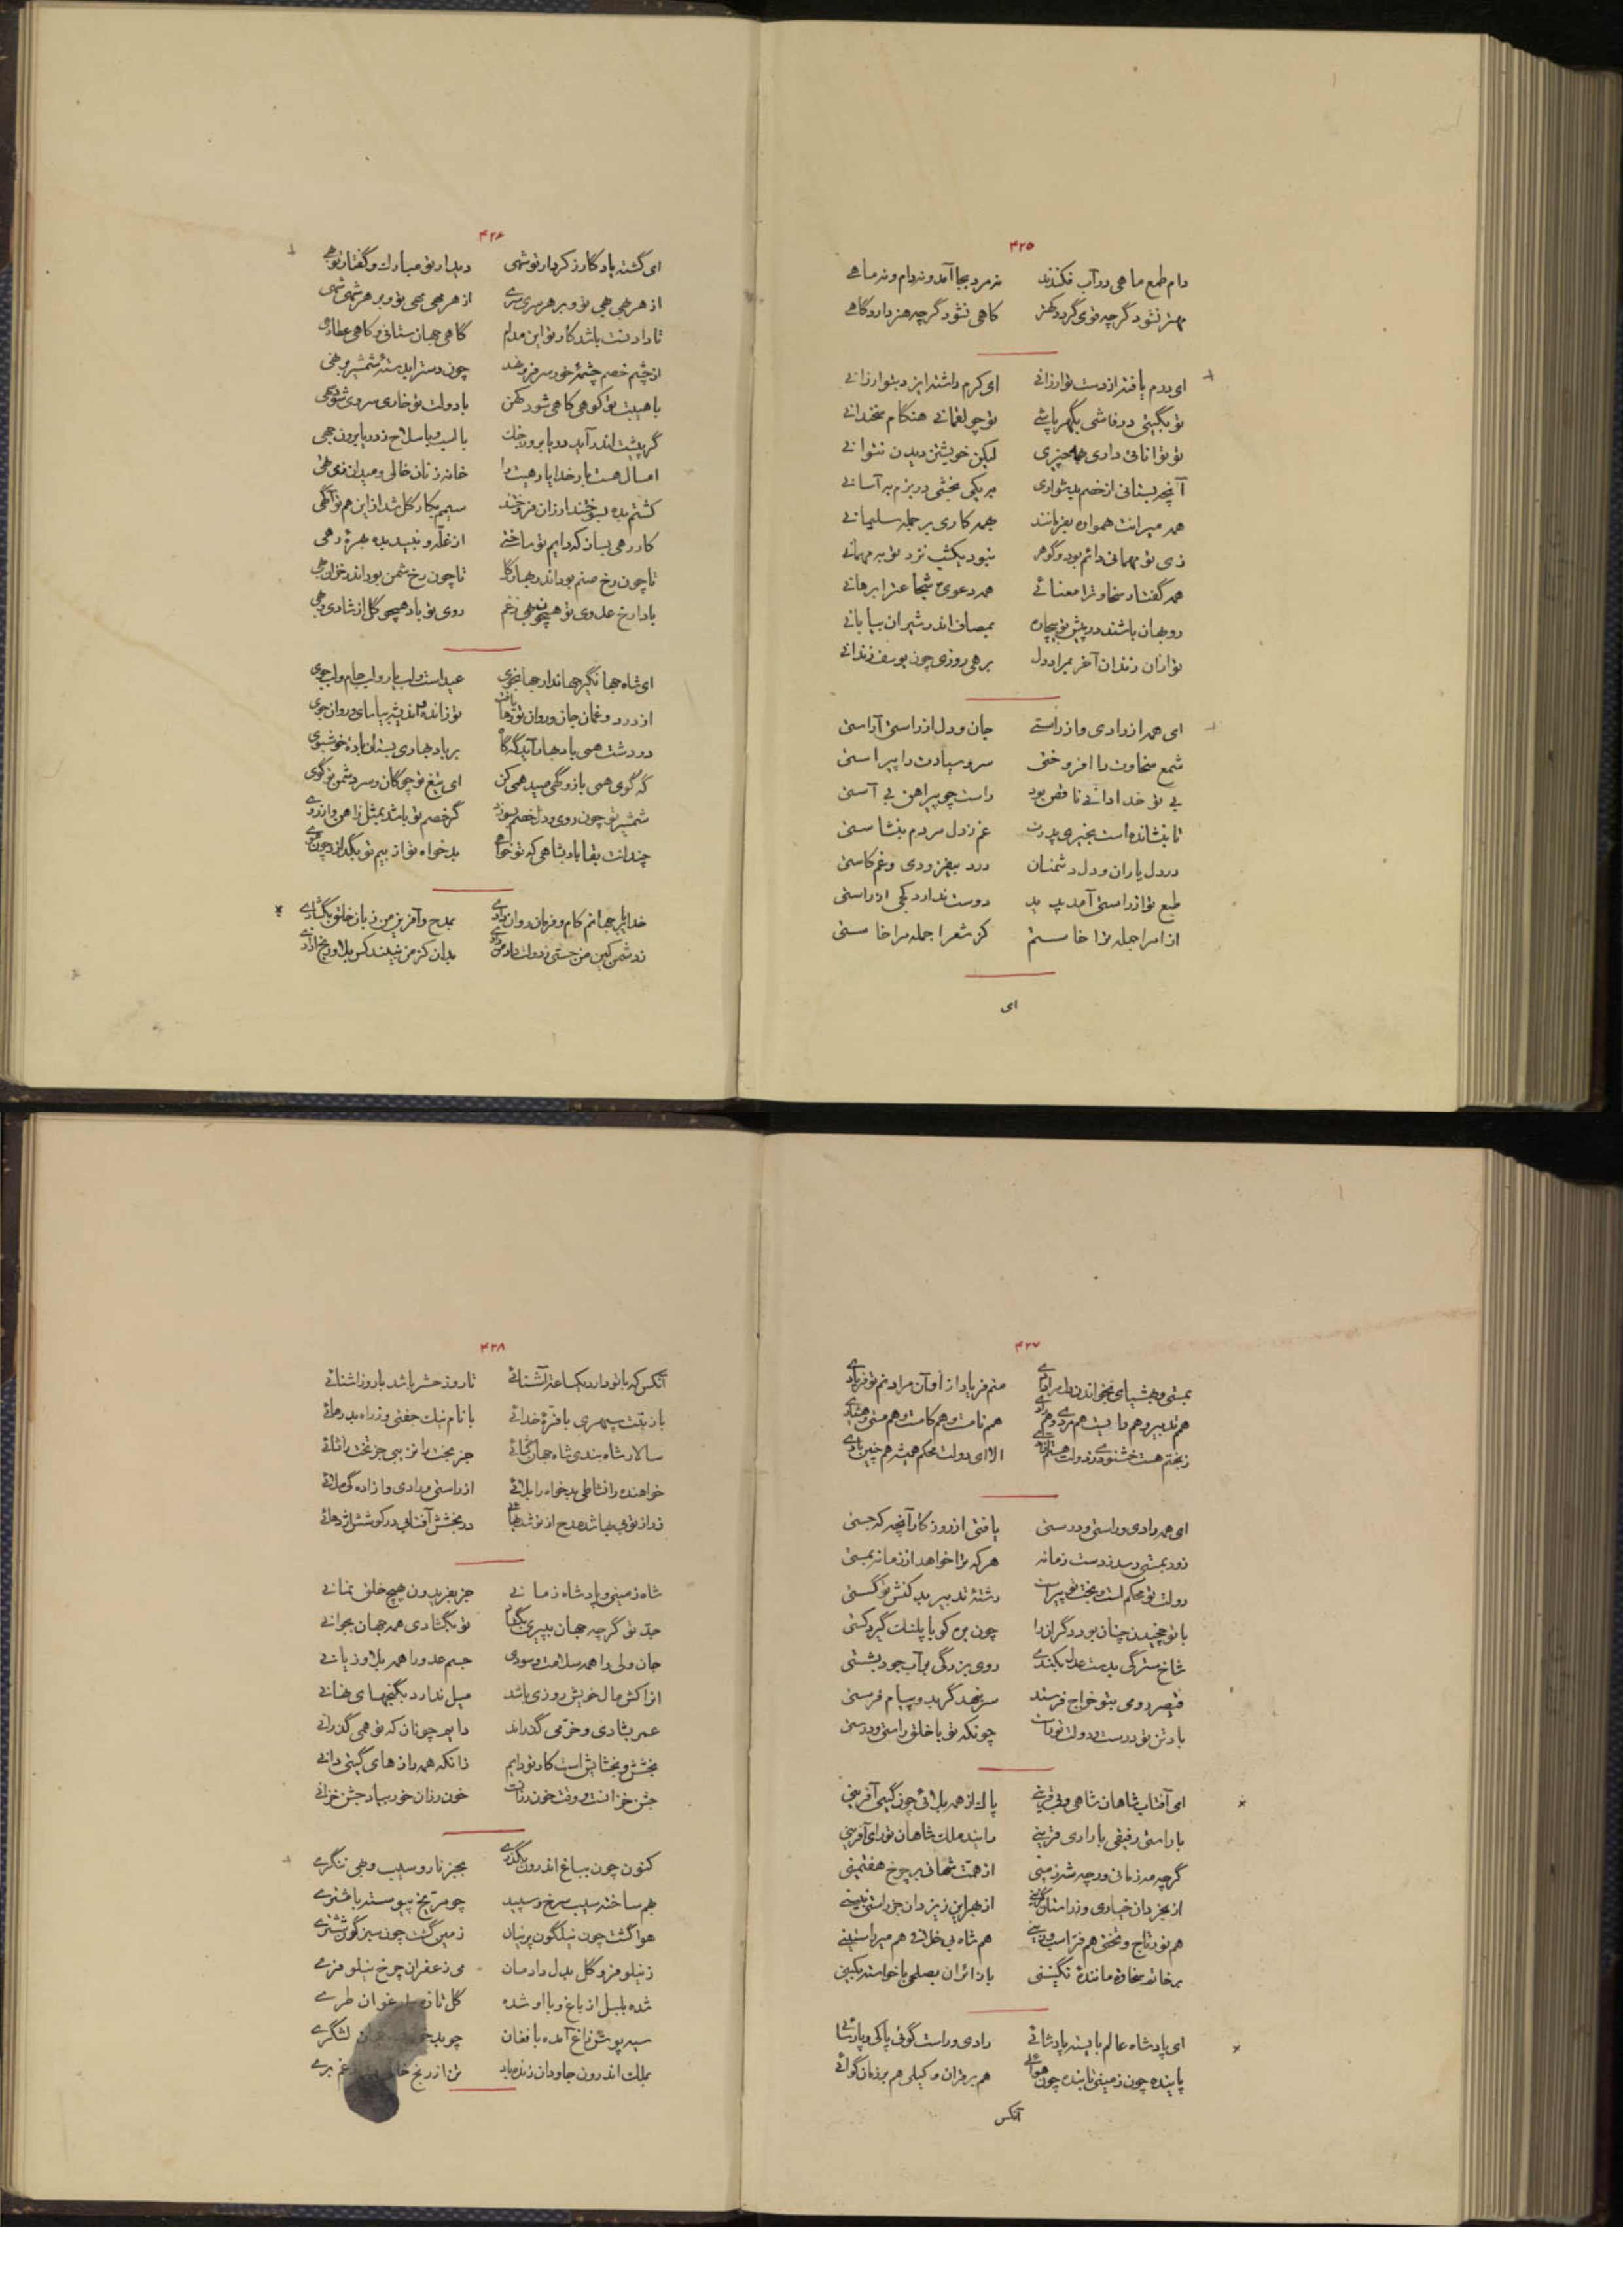 ۴۲۵
دام طمع ماهی در آب فکندند نه مرد بجا آمد و نه دام و نه ماهی
مهتر نشود گرچه قوی گردد کهتر کاهی نشود گرچه هنر دارد گاهی
ای درم یافته از دست تو ارزانی ای کرم داشته ایزد بتو ارزانی
تو بگیتی در فاشی بگهر پاشی تو چو لقمانی هنگام سخندانی
تو توانائی داری همه چیزی لیکن خویشتن دیدن نتوانی
آنچه بستانی از خصم بدشواری بر یکی بخشی در بزم به آسانی
همه میرانت همواره بفرمانند همه کاری بر جمله سلیمانی
زی تو مهمانی دائم بود و گوهر نبود یکشب نزد تو به مهمانی
همه گفتار سخاوت را معنائی همه دعوی شجاعت را برهانی
روبهان باشند در پیش تو بیچاره بمصاف اندر شیران بیابانی
تو از آن زندان آخر بمراد دل برهی روزی چون یوسف زندانی
ای همه از رادی و از راستی جان و دل از راستی آراستی
شمع سخاوت را افروختی سرو سیادت را پیراستی
بی تو خدا دانی ناقص بود راست چو پیراهن بی آستی
تا بنشانده است بخیری پدرت غم ز دل مردم بنشاستی
در دل یاران و دل دشمنان درد بیفزودی و غم کاستی
طبع تو از راستی آمد پدید دوست ندارد کجی از راستی
از امرا جمله ترا خاستم کز شعرا جمله مرا خاستی
ای
۴۲۶
ای گشته یادگار ز کردار تو شهی دیدار تو مبارک و گفتار تو بهی
از هر مهی مهی تو و بر هر سری سری از هر بهی بهی تو و بر هر شهی شهی
تا داد تنت باشد کار تو این مدام گاهی جهان ستانی و گاهی عطا دهی
از چشم خصم چشمه خون سر فرو نهد چون دست را بدسته شمشیر بر نهی
با هیبت تو کوهی کاهی شود کهن با دولت تو خاری سروی شود سهی
گر پیشت اندر آید دریا بروز جنگ با لب و با سلاح ز دریا برون جهی
امسال هست بار خدایا رهیت را خانه ز نان خالی و میدان ز می تهی
کشتم بده بسوختند ارزان فروختند سیمم بکار گل شد از این هم تو آگهی
کار رهی بساز که دایم تو ساختی از غله و نبید بده بهره رهی
تا چون رخ صنم بود اندر بهار گل تا چون رخ شمن بود اندر خزان بهی
بادا رخ عدوی تو همچون بهی ز غم روی تو باد همچو گل از شادی و بهی
ای شاه جهانگیر جهاندار جهانجوی عید است و لب یار و لب جام و لب جوی
از درد و غمان جان و روان تو رها یافت تو زانده و اندیشه بیاسای و روان جوی
در دشت همی باد بهار آید گه گاه بر باد بهاری بستان باده خوشبوی
گه گوی همی باز و گهی صید همی کن ای تیغ تو چوگان و سر دشمن تو گوی
شمشیر تو چون روی و دل خصم بسوزد گر خصم تو باشد بمثل ز آهن و از روی
چندانت بقا باد بشاهی که تو خواهی بدخواه تو از بیم تو بگدازد چون موی
خدایگان جهانم کام و فرمان روان دادی بمدح و آفرین من زبان خلق بگشادی
ز دشمن کین من جستی ز دولت داد من دادی بدان کز من نبیند کس بلا و رنج و آزادی
۴۲۷
بمستی و هشیاری نخواندن دام رادی منم فریاد از او آن مرادم تو فریادی
هم تدبیر و هم رایت هم مردی و هم رادی هم نامت و هم کامت و هم مستی و هم شادی
ز بختم هست خشنودی ز دولت هستم آزادی الا ای دولت محکم همیشه همچنین بادی
ای همه رادی و راستی و درستی یافتی از روزگار آنچه که جستی
زود بمستی رسد ز دست زمانه هر که ترا خواهد از زمانه بمستی
دولت تو محکم است و بخت تو پیراست رشته تدبیر بد کنش تو گسستی
با تو چخیدن چنان بود دگران را چون بره کو با پلنگ گیرد کشتی
شاخ سترگی بدست عدل بکندی روی بزرگی بآب جود بشستی
قیصر رومی بتو خراج فرستد سر نهد گر بدو پیام فرستی
باد تن تو درست و دولت تو راست چونکه تو با خلق راستی و درستی
ای آفتاب شاهان شاهی و بی قرینی پاک از همه بلائی چون گیتی آفرینی
با راستی رفیقی با رادی قرینی زایند ملک شاهان تو رای آفرینی
گرچه مه زمانی ورچه شه زمینی از همت شهانی بر چرخ هفتمینی
از بخردان خیاری وز راستان گزینی از بهر این ز یزدان جز راستی نبینی
هم نور تاج و تختی هم فر اسب و زینی هم شاه بی خلافی هم میر راستینی
بر خاتم سخاوت مانند نگینی با زائران بصلحی با خواسته بکینی
ای پادشاه عالم بایسته پادشائی رادی و راست گوئی پاکی و پارسائی
پاینده چون زمینی تابنده چون هوائی هم بر قران وکیلی هم بر زمان گوائی
آنکس
۴۲۸
آنکس که با تو دارد یکساعت آشنائی تا روز حشر باشد با روز آشنائی
با زینت سپهری با فره خدائی با نام نیک جفتی وز راه بد رهائی
سالار شاه بندی شاه جهان گشائی جز بخت را نزیبی جز تخت را نشائی
خواهنده را نشاطی بدخواه را بلائی از راستی و رادی و آزادگی ملائی
زر از تو بی بها شد مدح از تو شد بهائی در بخشش آفتابی در کوشش اژدهائی
شاه زمینی و پادشاه زمانی جز بفریدون هیچ خلق نمانی
جد تو گرچه جهان بپیری بگرفت تو بگشادی همه جهان بجوانی
جان ولی را همه سلامت و سودی جسم عدو را همه بلا و زیانی
از آکش مال خویش روزی باشد میل ندارد بگنجهای نهانی
عمر بشادی و خرمی گذراند دایم چونان که تو همی گذرانی
بخشش و بخشایش است کار تو دایم زانکه همه رازهای گیتی دانی
جشن خزانست و وقت خون رزانست خون رزان خور بیاد جشن خزانی
کنون چون بباغ اندرون بگذری بجز نار و سیب و بهی ننگری
بهم ساخته سیب سرخ و سپید چو مریخ پیوسته با مشتری
هوا گشت چون نیلگون پرنیان زمین گشت چون سبز گون ششتری
ز نیلوفر و گل بدل دادمان می زعفران چرخ نیلوفری
شده بلبل از باغ و با او شده گل تازه و ارغوان طری
سیه پوش زاغ آمده با فغان چو بد لشگری
بملک اندرون جاودان زنده باد تن از رنج غم بری